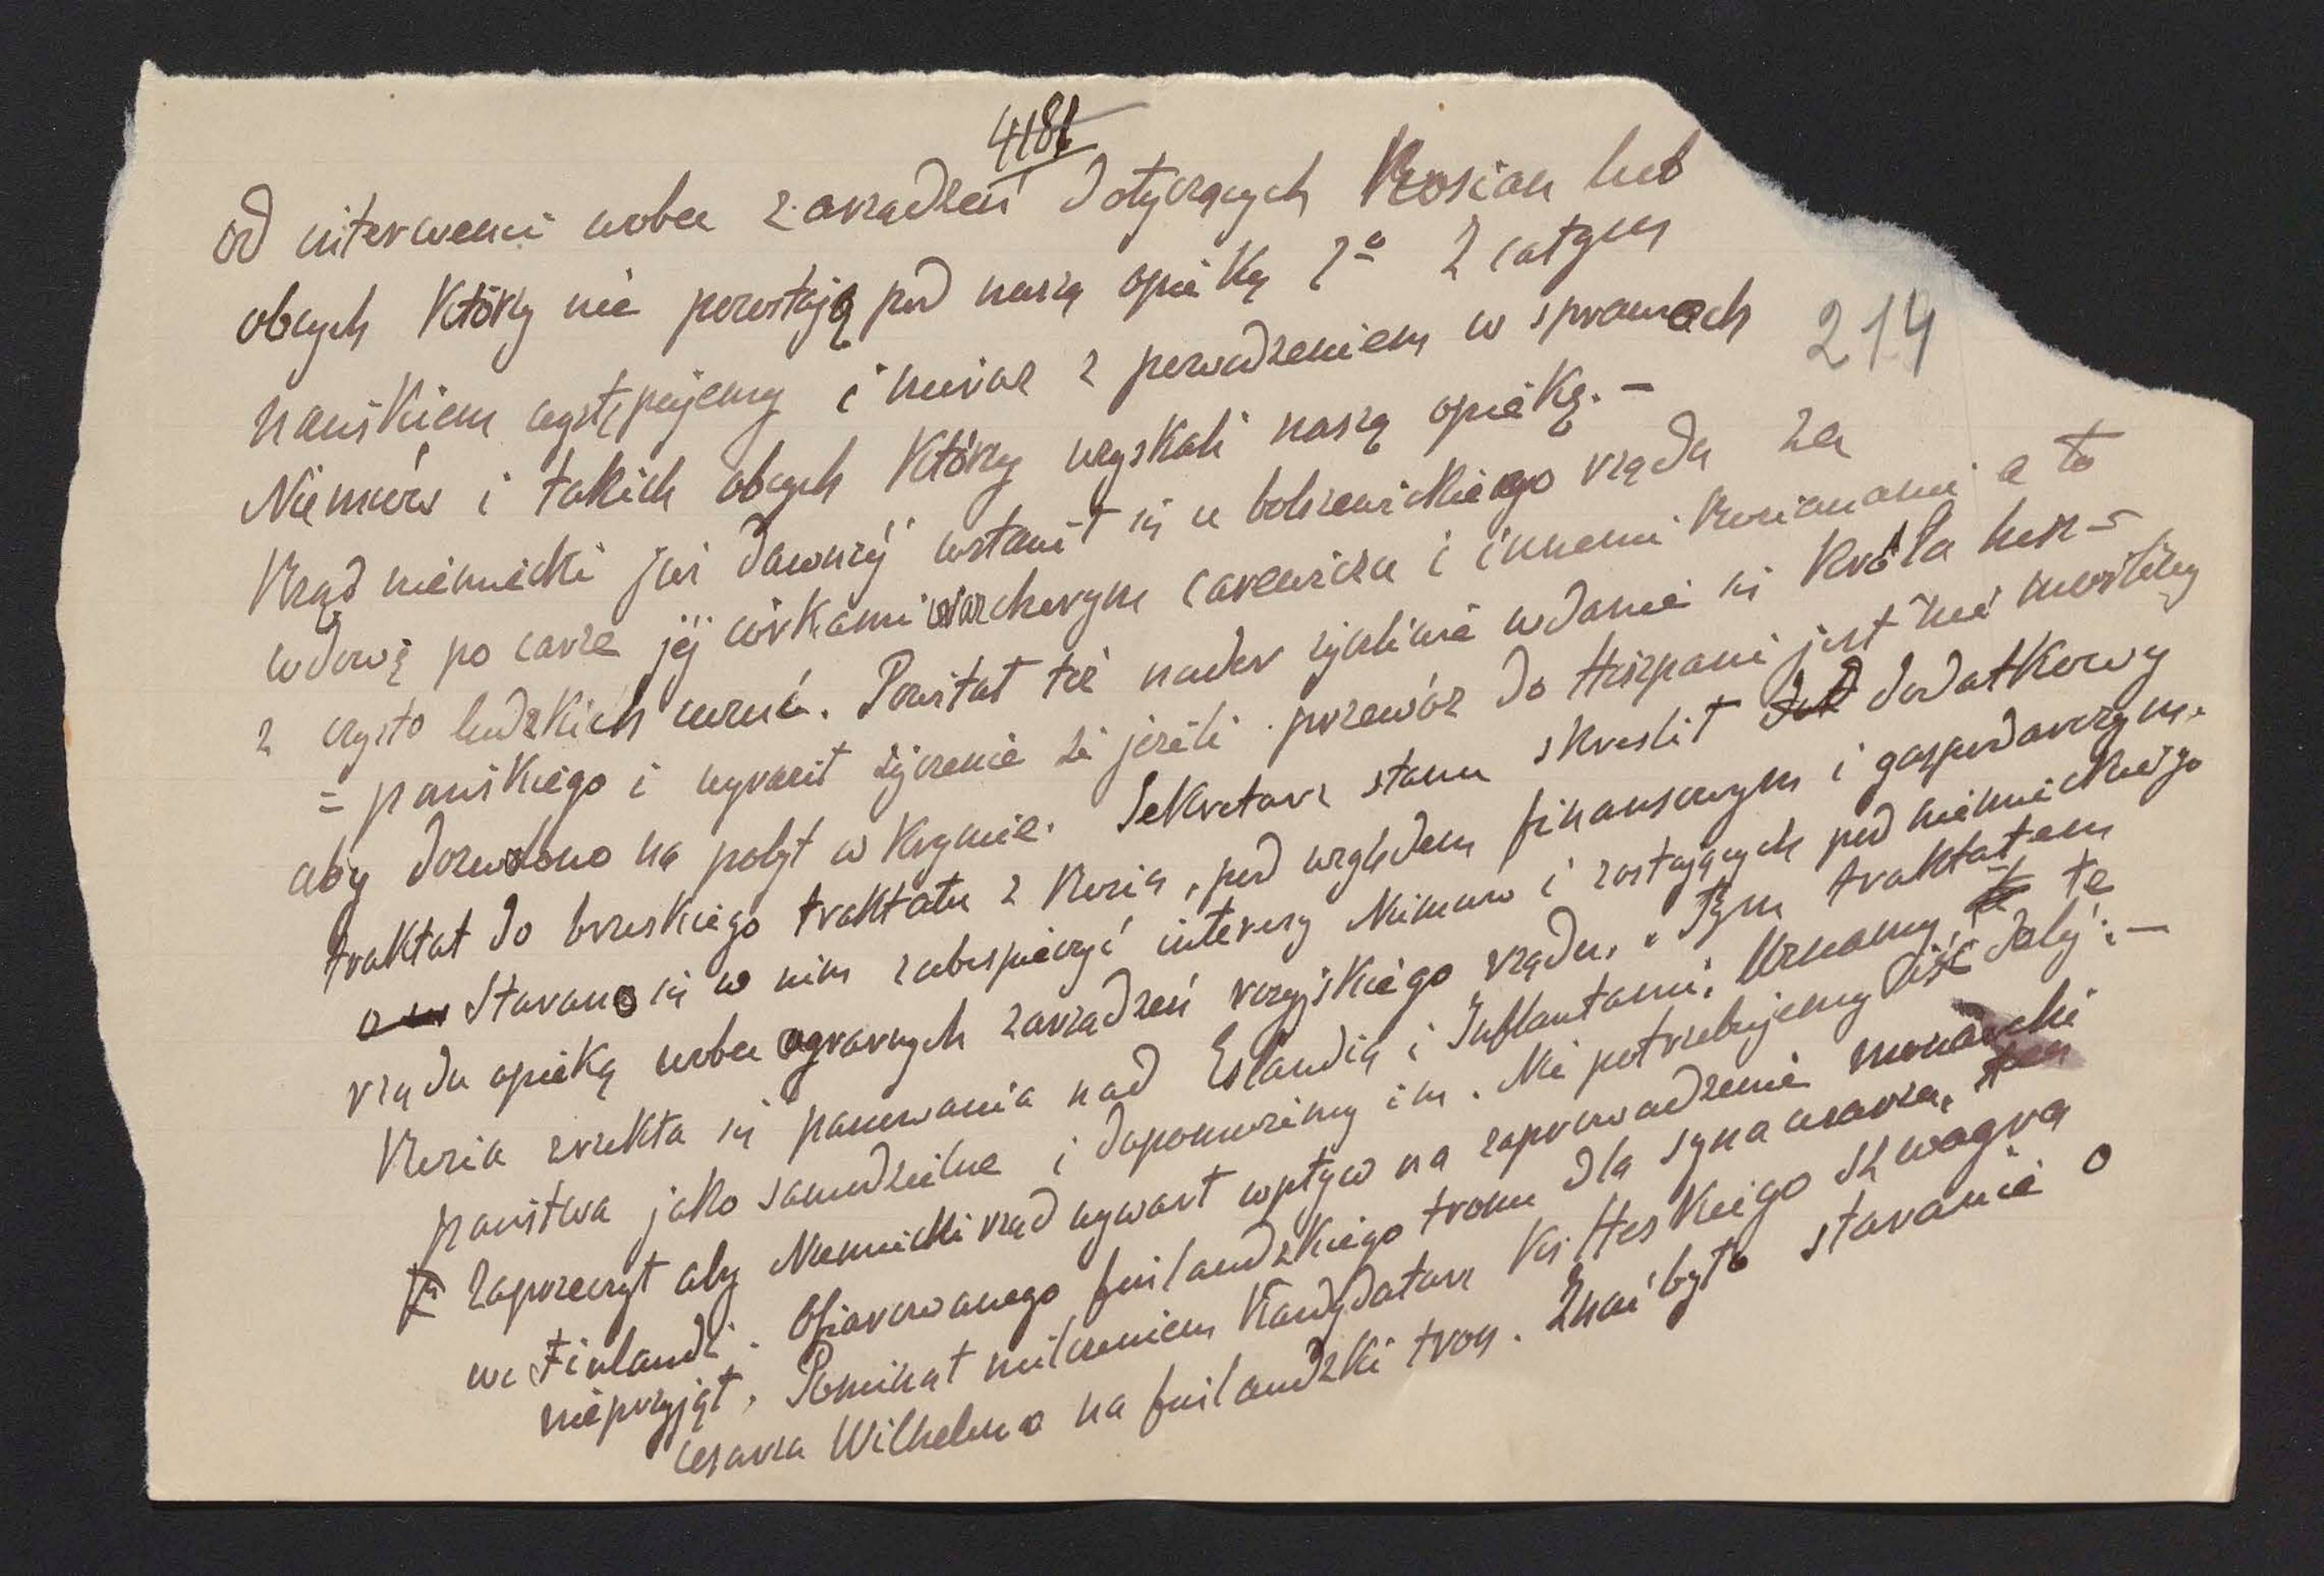 4181
od interwencii wobec zarządzeń dotyczących Rosian lub
obcych którzy nie pozostają pod naszą opieką 2º Z całym
naciskiem występujemy i
z powodzeniem w sprawach
214
Niemców i takich obcych którzy uzyskali naszą opiekę. –
Rząd niemiecki już dawniéj wstawił się u bolszewickiego rządu za
wdową po carze jéj córkami
carewicza i innemi Rosianami a to
z czysto ludzkich uczuć. Powitał też nader życzliwie wdanie się Króla hisz-
=pańskiego i wyraził życzenie że jeżeli przewóz do Hiszpanii jest nie możliwy
aby dozwolono na pobyt w Krymie. Sekretarz stanu skreślił dodatkowy
traktat do brzeskiego traktatu z Rosią, pod względem finansowym i gospodarczym.
Starano się w nim zabespieczyć interesy Niemców i zostających pod niemieckiego
rządu opieką wobec ograrnych zarządzeń rosyjskiego rządu. „Tym traktatem
Rosia zrzekła się panowania nad Estandią i Inflantami. Uznamy te
państwa jako samodzielne i dopomożimy im. Nie potrzebujemy iść daléj”. –
Zaprzeczył aby Niemiecki rząd wywarł wpływ na zaprowadzenie monarchii
we Finlandi. Ofiarowanego finlandzkiego tronu dla syna cesarza, ten
nieprzyjął. Pominął milczeniem kandydaturę Ks. Heskiego szwagra
cesarza Wilhelma na finlandzki tron. Znać było staranie o